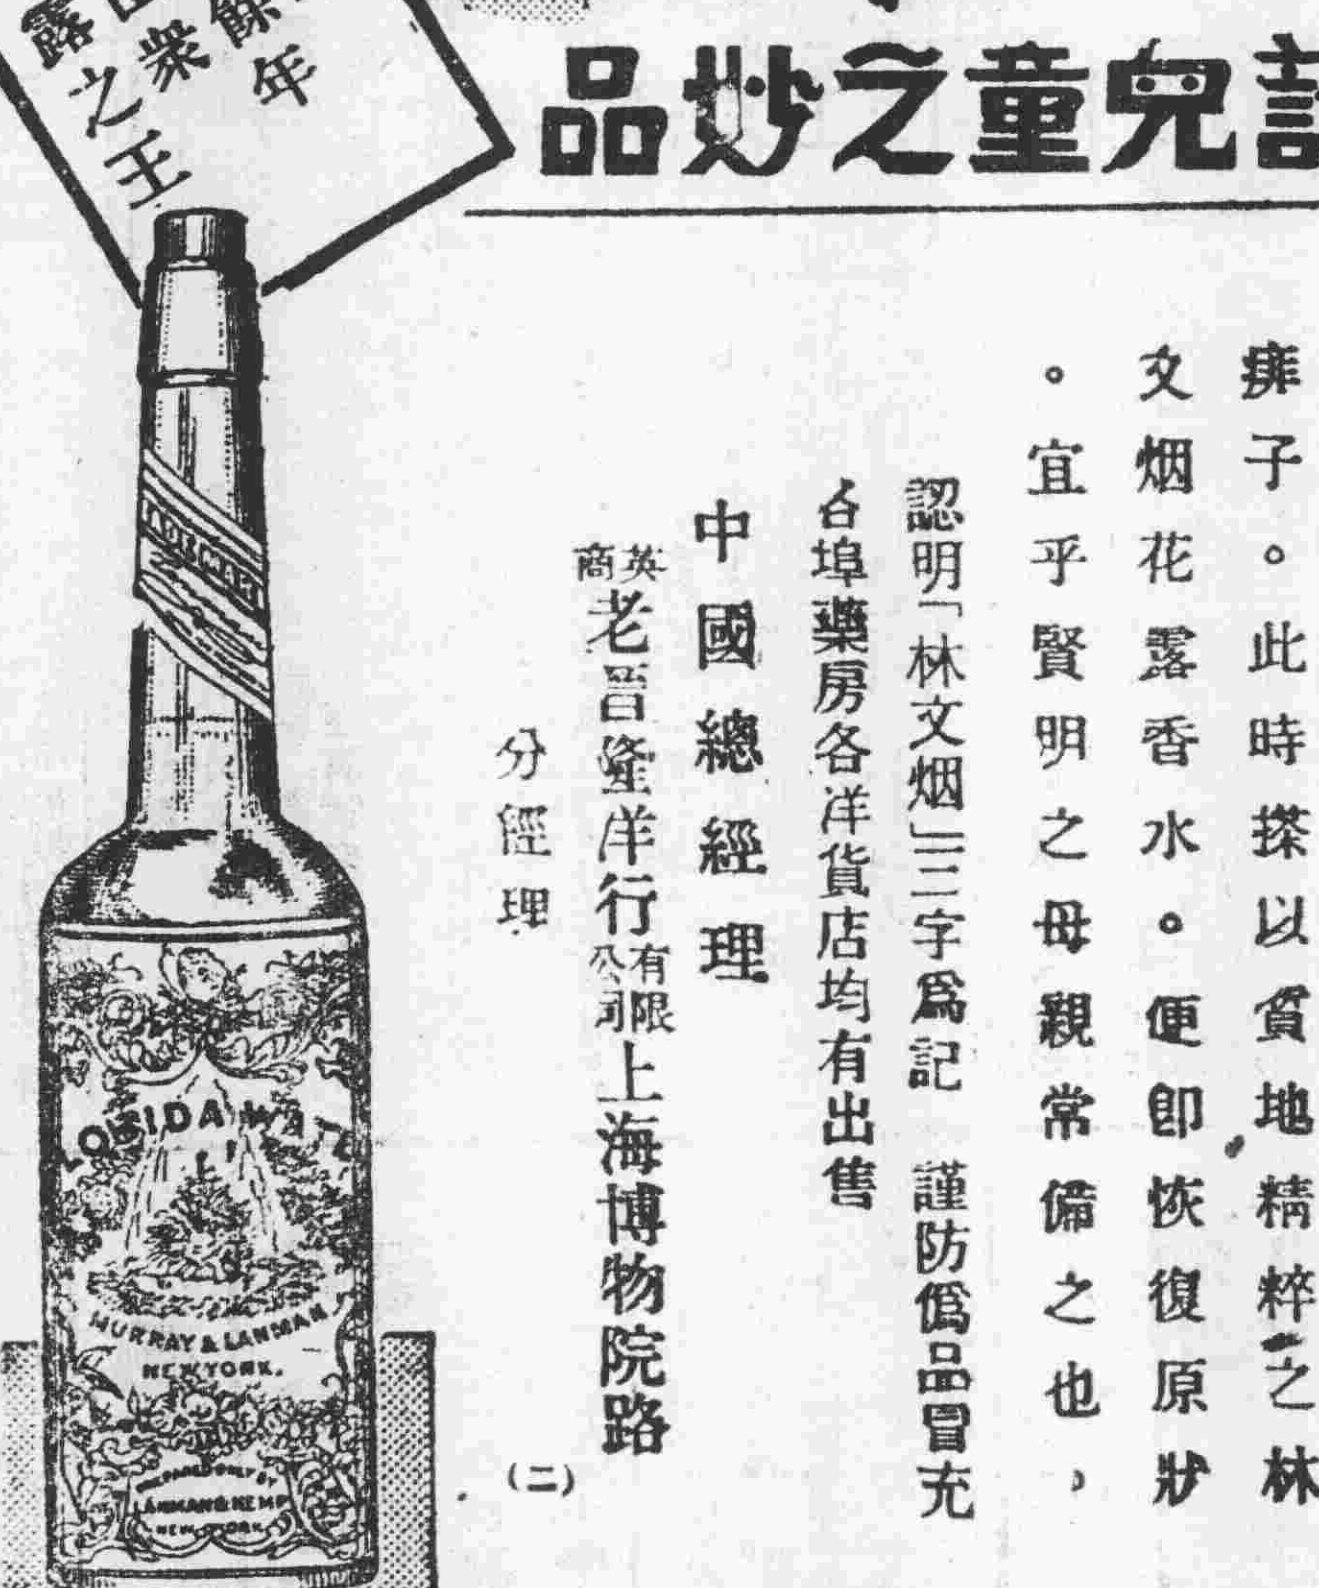 兒童之妙品
痱子。此時搽以質地精粹之林
文烟花露香水。便即恢復原狀
。宜乎賢明之母親常備之也，
認明「林文烟」三字爲記　謹防僞品冒充
各埠藥房各洋貨店均有出售
中國總經理
英商老晉隆洋行有限公司上海博物院路
分經理
(二)
餘年
衆
露之王
FLORIDA WATER
MURRAY & LANMAN
NEW YORK.
PREPARED ONLY BY
LANMAN & KEMP
NEW YORK.